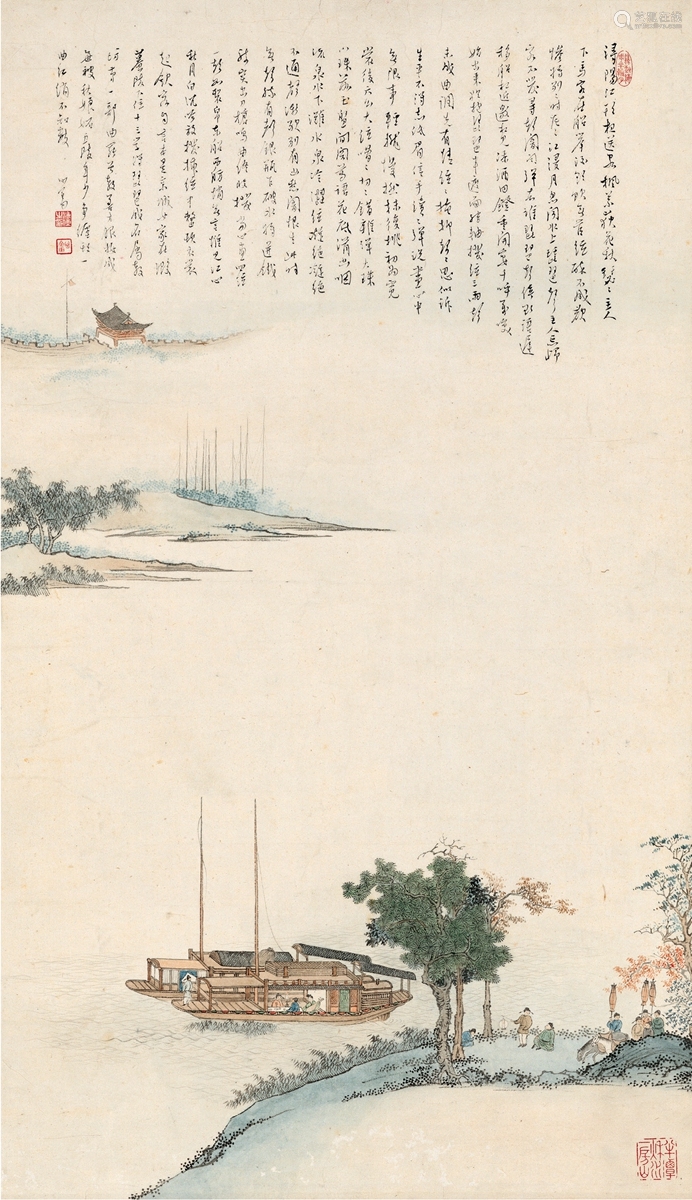 潯陽江頭夜送客楓葉荻花秋瑟〻主人
下馬客在船舉酒欲飲無管絃醉不成歡
慘將別〻時茫〻江浸月忽聞水上琵琶聲主人忘歸
客不發尋聲闇問彈者誰琵琶聲停欲語遲
移船相近邀相見添酒回燈重開宴千呼萬喚
始出來猶抱琵琶半遮面轉軸撥絃三兩聲
未成曲調先有情絃〻掩抑聲〻思似訴
生平不得志低眉信手續〻彈說盡心中
無限事輕攏慢撚抹復挑初為霓
裳後六幺大絃嘈〻切〻錯雜彈大珠
小珠落玉盤間關鶯語花底滑幽咽
流泉水下灘水泉冷澀絃凝絕凝絕
不通聲漸歇別有幽愁闇恨生此時
無聲勝有聲銀瓶乍破水漿迸鐵
騎突出刀槍鳴曲終收撥當心畫四絃
一聲如裂帛東船西舫悄無言惟見江心
秋月白沈吟放撥插絃中整頓衣裳
起斂容自言本是京城女家在蝦
蟇陵下住十三學得琵琶成名屬教
坊第一部曲罷常教善才服妝成
每被秋娘妬五陵年少爭纏頭一
曲紅綃不知數 心畬
半潭秋水一房山
艺狐在线